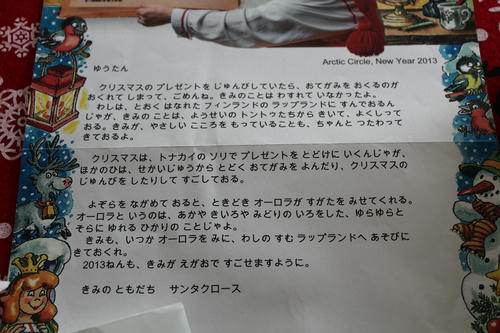 Arctic Circle, New Year 2013
ゆうたん
クリスマスの プレゼントを じゅんびしていたら、おてがみを おくるのが
おくれて しまって、ごめんね。きみのことは わすれて いなかったよ。
わしは、とおく はなれた フィンランドの ラップランドに すんでおるん
じゃが、きみの ことは、ようせいの トントゥたちから きいて、よくしって
おる。きみが、やさしい こころを もっていることも、ちゃんと つたわって
きておるよ。
クリスマスは、トナカイの ソリで プレゼントを とどけに いくんじゃが、
ほかのひは、せかいじゅうから とどく おてがみを よんだり、クリスマスの
じゅんびを したりして すごしておる。
よぞらを ながめて おると、ときどき オーロラが すがたを みせてくれる。
オーロラと いうのは、あかや きいろや みどりの いろをした、ゆらゆらと
そらに ゆれる ひかりの ことじゃよ。
きみも、いつか オーロラを みに、わしの すむ ラップランドへ あそびに
きておくれ。
2013ねんも、きみが えがおで すごせますように。
きみの ともだち サンタクロース